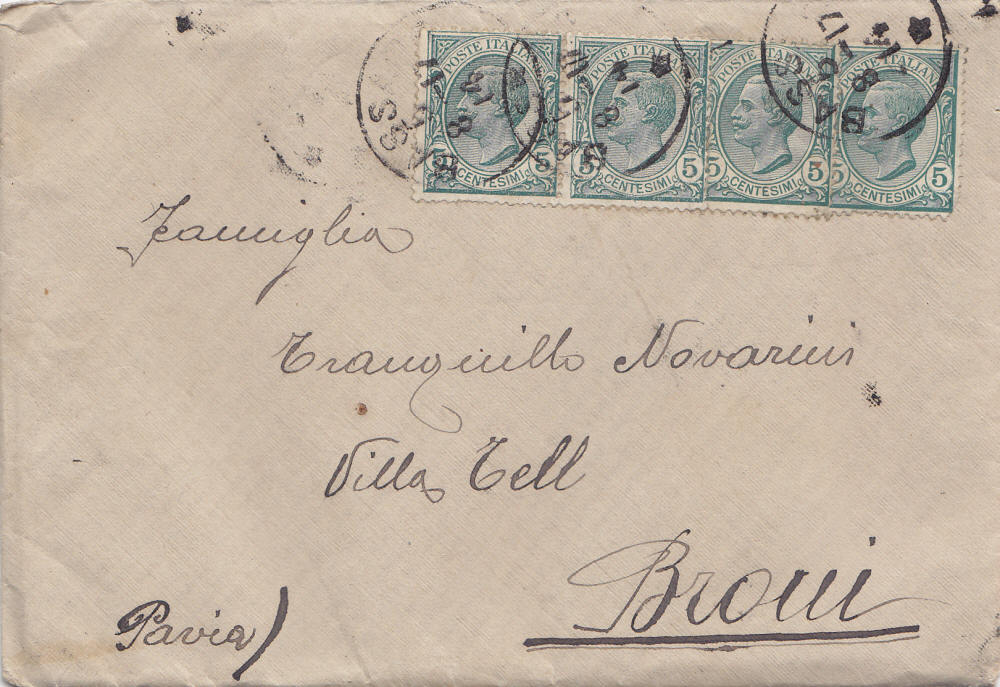 POSTE ITALIANE POSTE ITALIANE POSTE ITALIANE POSTE ITALIANE
5 5 5 5 5 5 5 5
CENTESIMI CENTESIMI CENTESIMI CENTESIMI
Famiglia
Tranquillo Novarini
Villa Tell
Broni
Pavia)